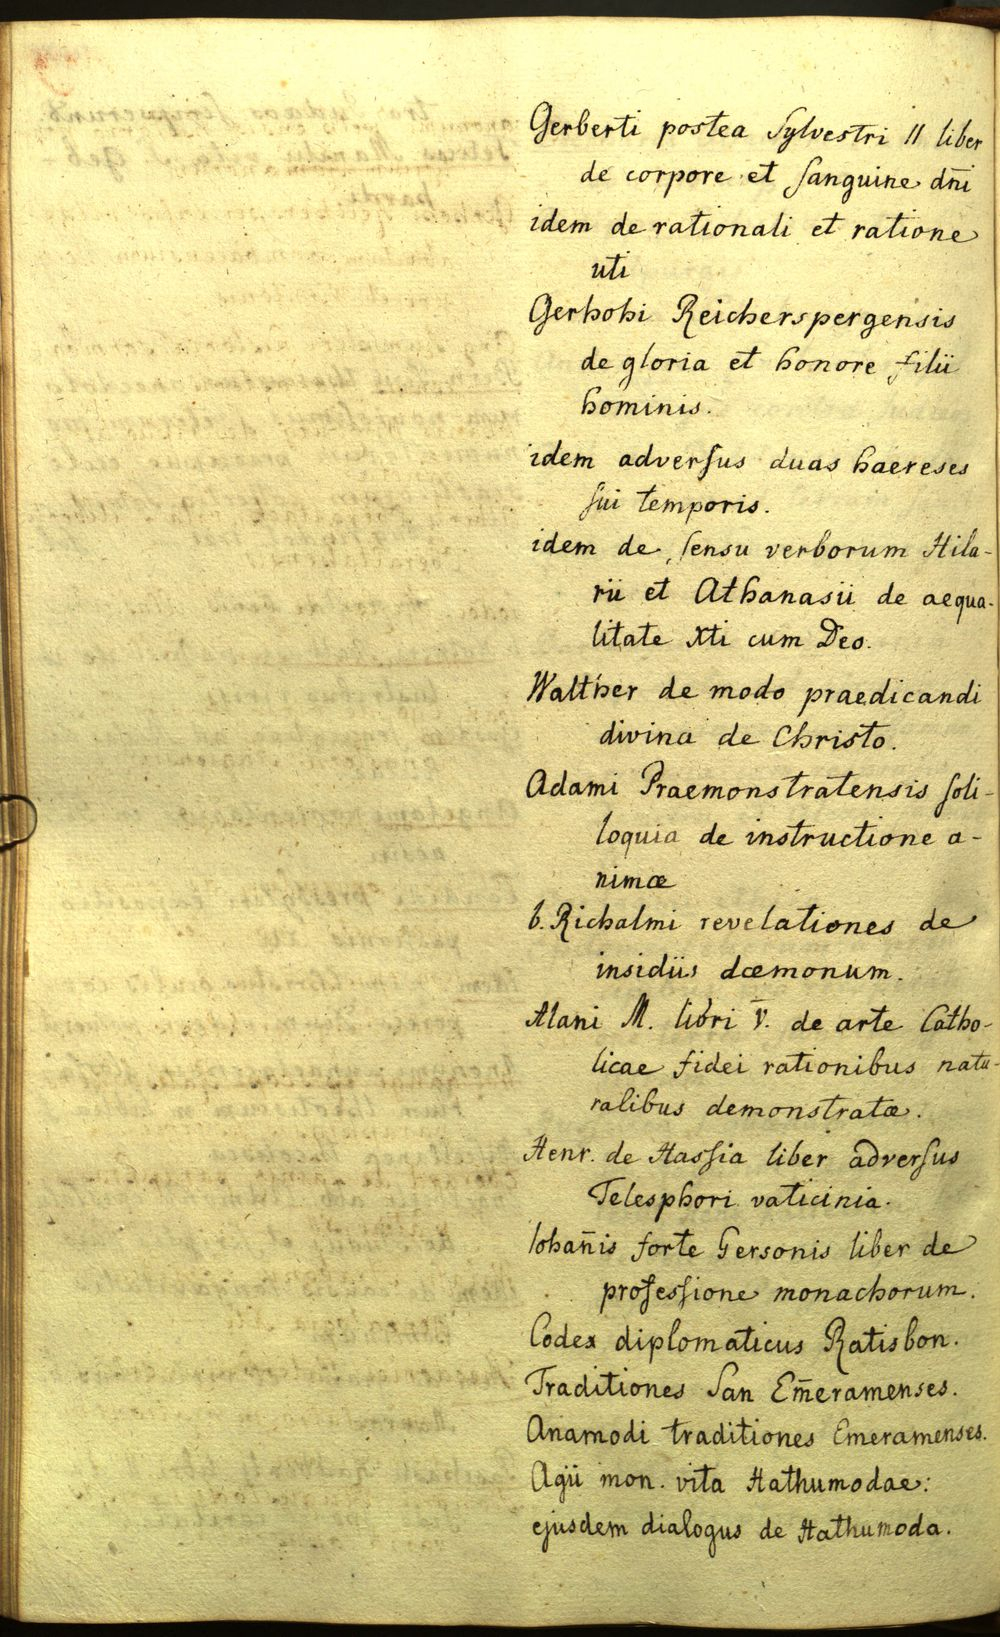 Gerberti postea Sylvestri II liber
de corpore et ſanguine dn̄i
idem de rationali et ratione
uti
Gerhohi Reicherspergensis
de gloria et honore filii
hominis.
idem adverſus duas haereses
ſui temporis.
idem de ſensu verborum Hila-
rii et Athanasii de aequa-
litate Xti cum Deo.
Walther de modo praedicandi
divina de Christo.
Adami Praemonstratensis ſoli-
loquia de instructione a-
nimæ
b. Richalmi revelationes de
insidiis dæmonum.
Alani M. libri V. de arte Catho-
licae fidei rationibus natu-
ralibus demonstratæ.
Henr. de Haſsia liber adverſus
Telesphori vaticinia.
Iohan̄is forte Gersonis liber de
profeſsione monachorum.
Codex diplomaticus Ratisbon.
Traditiones San Em̄eramenses.
Anamodi traditiones Emeramenses.
Agii mon. vita Hathumodae:
ejusdem dialogus de Hathumoda.